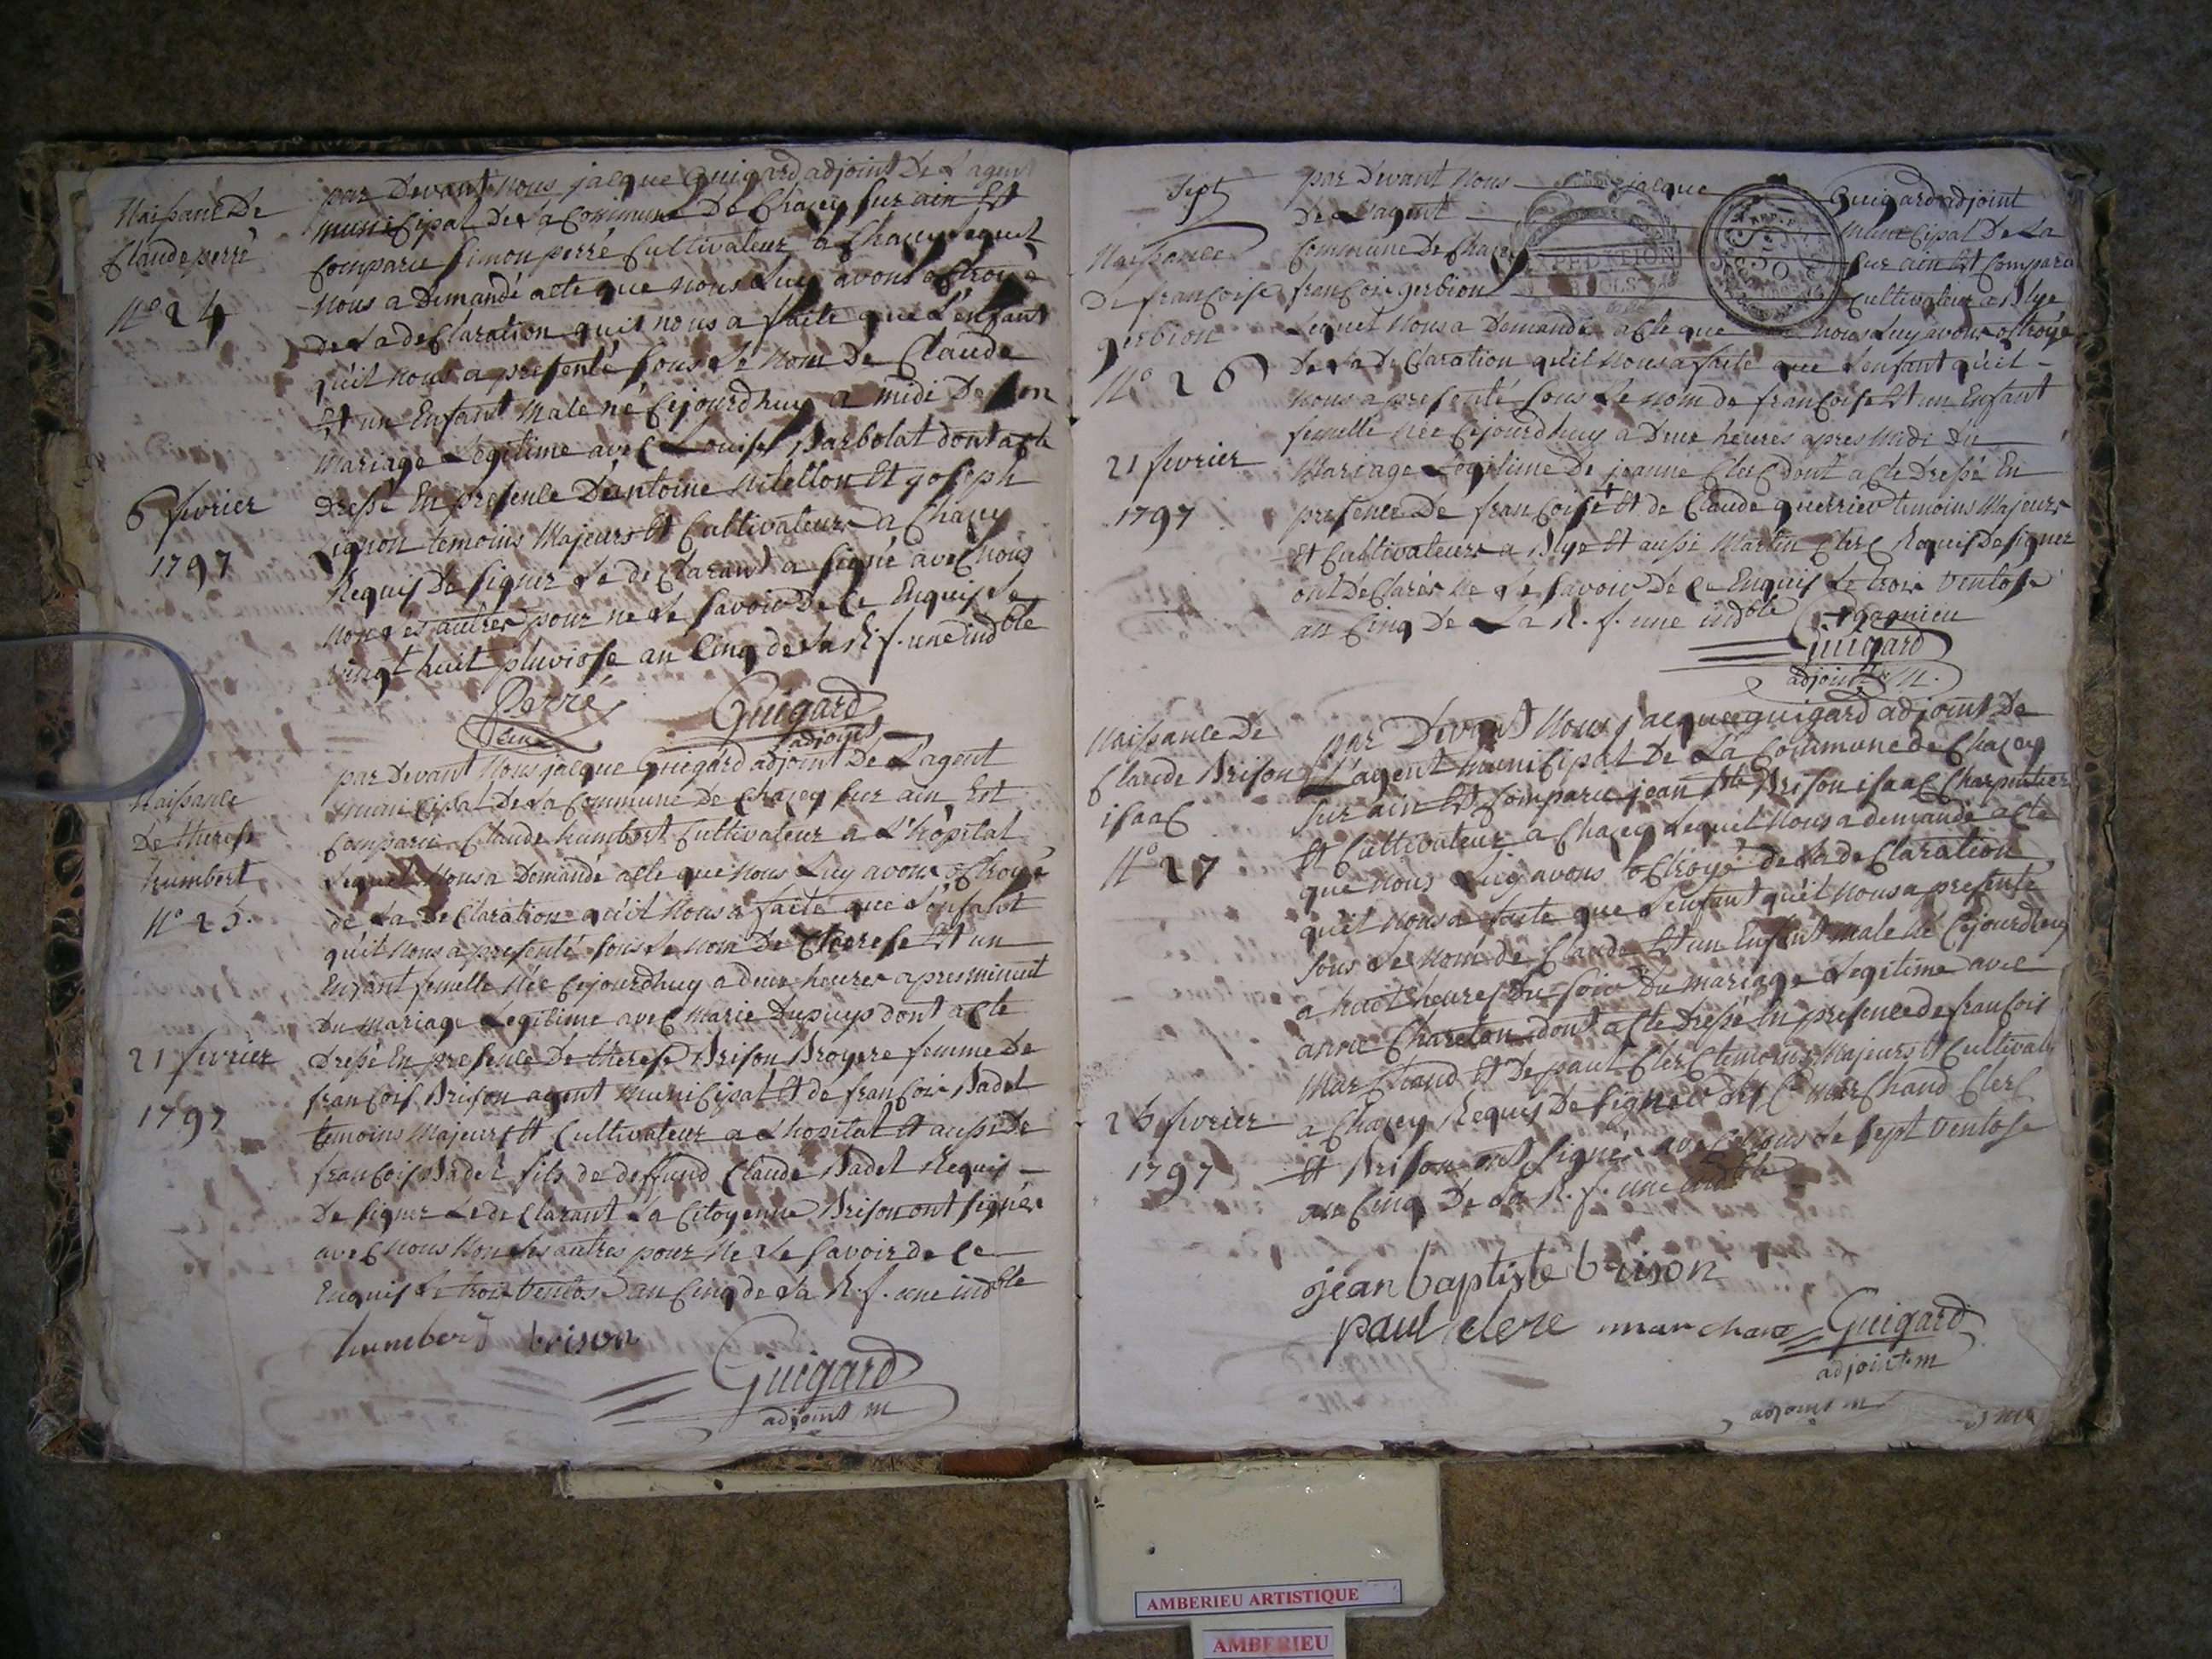 Naissance De
Claude perré
N° 24
6 fevrier
1797
par Devant Nous jacque Guigard adjoint De L'agent
municipal De La Commune De Chazey sur ain Est
Comparu Simon perré Cultivateur à Chazey Lequel
Nous a Demandé acte que nous Luy avons octroyé
de La deClaration qu'il nous a faite que L'enfant
qu'il nous a presenté sous Le Nom De Claude
Est un Enfant Male né Cejourdhuy a midi De son
Mariage Legitime aveC Louise Barbolat dont acte
Dressé En presence D'antoine Et joseph
temoins Majeurs Et Cultivateurs a Chazey
Requis De signer Le deClarant a signé aveC nous
Non Les autres pour ne Le savoir De Ce Enquis Le
vingt huit pluviose an Cinq de La R. f. une indble
Perré Guigard
adjoint
Naissance
De therese
humbert
N° 25.
21 fevrier
1797
par Devant Nous jacque Guigard adjoint De L'agent
municipal De La Commune De Chazey sur ain Est
Comparu Claude humbert Cultivateur a L'hôpital
Lequel Nous a Demandé acte que Nous Luy avons octroyé
de La DeClaration qu'il Nous a faite que L'enfant
qu'il Nous a presenté sous Le nom De Therese Est un
Enfant femelle Née Cejourdhuy a deux heures apres minuit
Du mariage Legitime aveC Marie Dupuys dont aCte
Dressé En presence De therese Brison Broyere femme De
françois Brison agent MuniCipal Et de françois Badel
temoins Majeurs Et Cultivateur a Lhopital Et aussi De
françois Badel fils de deffund Claude Badel Requis
De signer Le deClarant La Citoyenne Brison ont signés
aveC nous Non Les autres pour Ne Le savoir de Ce
Enquis Le trois Ventose an Cinq de La R. f. une indble
humbert brison
Guigard
adjoint m
Sept
Naissance
De françoise
gerbion
N° 26
21 fevrier
1797
par Devant Nous jacque Guigard adjoint
De L'agent muniCipal De La
Commune De Chazey sur ain Est Comparu
françois gerbion Cultivateur a Blye
Lequel Nous a Demandé aCte que nous Luy avons octroyé
De La DeClaration qu'il Nous a faite que L'enfant qu'il
Nous a presenté sous Le nom de françoise Est un Enfant
femelle Née Cejourdhuy a Deux heures apres Midi Du
Mariage Legitime De jeanne Clerc dont acte Dressé En
presence De françoise Et de Claude guerrier temoins Majeurs
Et Cultivateurs a Blye Et aussi Martin Clerc Requis De signer
ont DeClarés Ne Le savoir De Ce Enquis Le trois Ventose
an Cinq De La R. f. une indble
Guigard
adjoint M.
Naissance De
Claude Brison
isaac
N° 27
25 fevrier
1797
par Devant Nous jacque guigard adjoint De
L'agent muniCipal De La Commune de Chazey
sur ain Est Comparu jean Bte Brison isaaC Charpentier
Et Cultivateur a Chazey Lequel Nous a demandé aCte
que Nous Luy avons octroyé de La deClaration
qu'il Nous a faite que L'enfant qu'il Nous a presenté
sous Le Nom de Claude Est un Enfant Male Né Cejourdhuy
a huit heures Du soir Du mariage Legitime avec
anne Charelon dont aCte Dressé En presence de françois
MarChand Et De paul Clerc temoins Majeurs Et Cultivat
a Chazey Requis De signer Les C. MarChand Clerc
Et Brison ont signés aveC Nous Le Sept Ventose
an Cinq De La R. f. une indble
jean baptiste brison
paul clerc marchand Guigard
adjoint m
adjoint m
AMBERIEU ARTISTIQUE
AMBERIEU